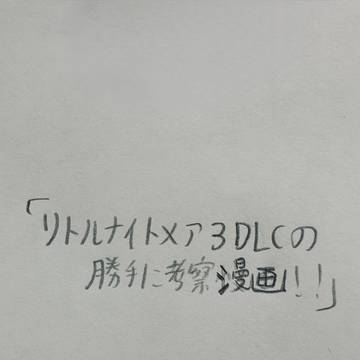 「リトルナイトメア3DLCの
勝手に考察漫画!!」